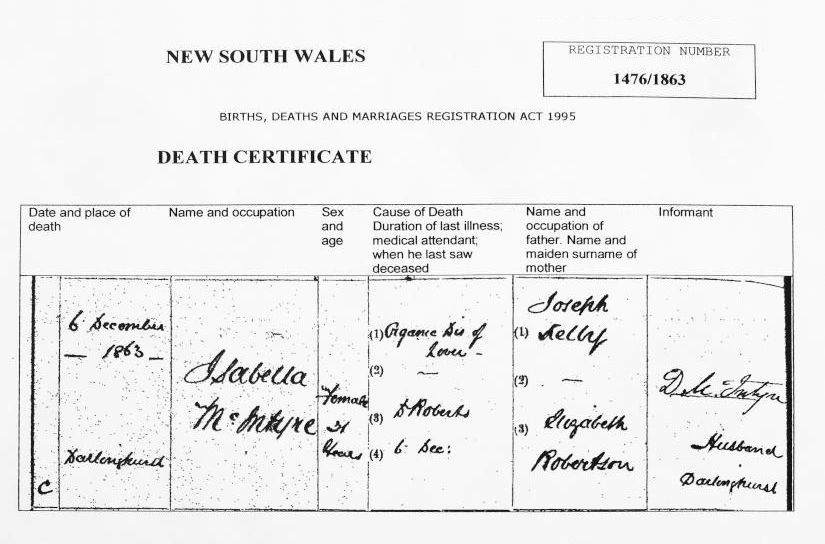 NEW SOUTH WALES
REGISTRATION NUMBER
1476/1863
BIRTHS, DEATHS AND MARRIAGES REGISTRATION ACT 1995
DEATH CERTIFICATE
Date and place of
death
Name and occupation
Sex
and
age
Cause of Death
Duration of last illness;
medical attendant;
when he last saw
deceased
Name and
occupation of
father. Name and
maiden surname of
mother
Informant
6 December
— 1863 —
Darlinghurst
C
Isabella
McIntyre
Female
Years
(1) Organic Dis of
Liver –
(2) —
(3) Dr Roberts
(4) 6 Dec:
Joseph
(1) Kelly
(2) —
(3) Elizabeth
Robertson
D. McIntyre
Husband
Darlinghurst